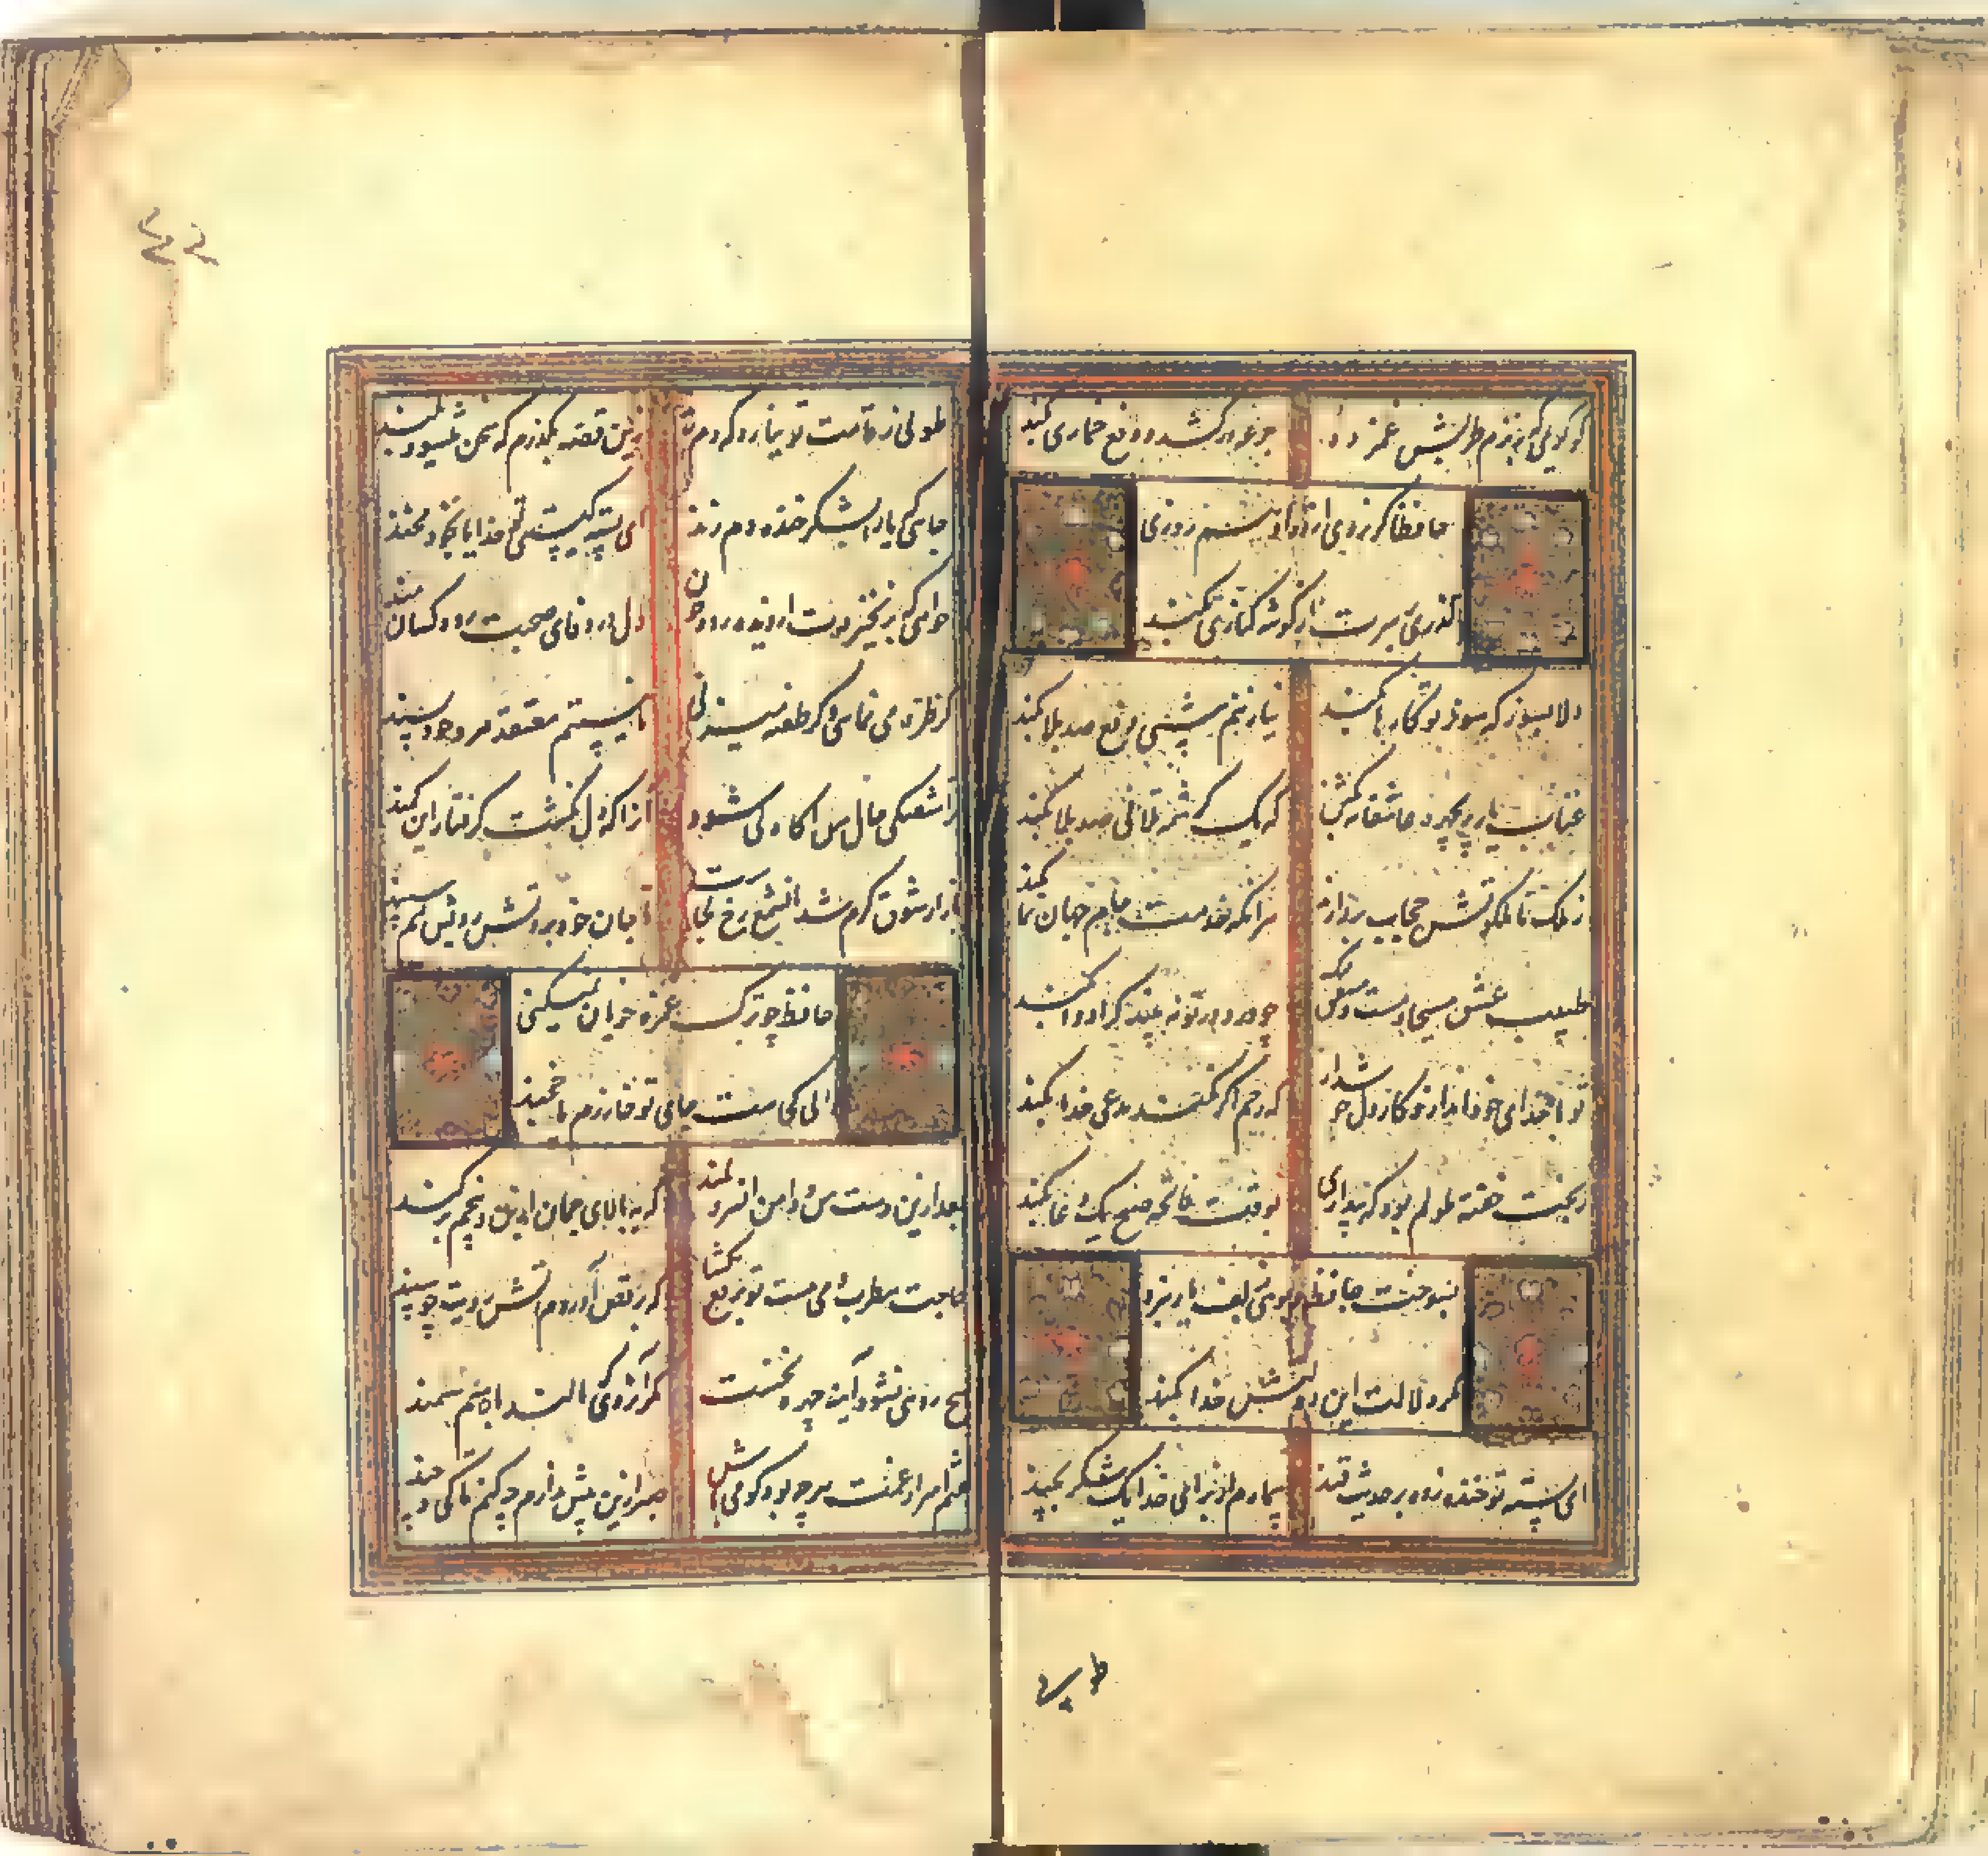 کو کریمی که ز بزم طربش غمزده
جرعه درکشد و دفع خماری بکند
حافظا گر نروی از در او هم روزی
گذری بر سرت از گوشه کناری بکند
دلا بسوز که سوز تو کارها بکند
نیاز نیم شبی دفع صد بلا بکند
عتاب یار پریچهره عاشقانه بکش
که یک کرشمه تلافی صد بلا بکند
ز ملک تا ملکوتش حجاب بردارند
هرآنکه خدمت جام جهان نما بکند
طبیب عشق مسیحا دمست و مشفق لیک
چو درد در تو نه بیند کرا دوا بکند
تو با خدای خود انداز کار و دل خوش دار
که رحم اگر نکند مدعی خدا بکند
ز بخت خفته ملولم بود که بیداری
بوقت فاتحه صبح یک دعا بکند
بسوخت حافظ و بوئی بزلف یار نبرد
مگر دلالت این دولتش خدا بکند
ای پسته تو خنده زده بر حدیث قند
بیمارم از برای خدا یک شکر بخند
طوبی
طوبی ز قامت تو نیارد که دم زند
زین قصه بگذرم که سخن میشود بلند
جایی که یار ما بشکر خنده دم زند
ای پسته کیستی تو خدا را بخود مخند
خواهی که برنخیزدت از دیده رود خون
دل در وفای صحبت رود کسان مبند
گر طره می نمایی و گر طعنه میزنی
ما نیستیم معتقد مرد خودپسند
ز اشفتگی حال من آگاه کی شود
آنرا که دل نگشت گرفتار این کمند
بازار شوق گرم شد آن شمع رخ کجاست
تا جان خود بر آتش رویش کنم سپند
حافظ چو ترک غمزه خوبان نمیکنی
دانی کجاست جای تو خوارزم یا خجند
بعد ازین دست من و دامن آن سرو بلند
که به بالای چمان از بن و بیخم برکند
حاجت مطرب و می نیست تو برقع بگشا
که برقص آوردم آتش رویت چو سپند
هیچ روئی نشود آینه چهره بخت
مگر آن روی که مالند بر آن سم سمند
گفتم اسرار غمت هرچه بود گو می باش
صبر ازین بیش ندارم چکنم تا کی و چند